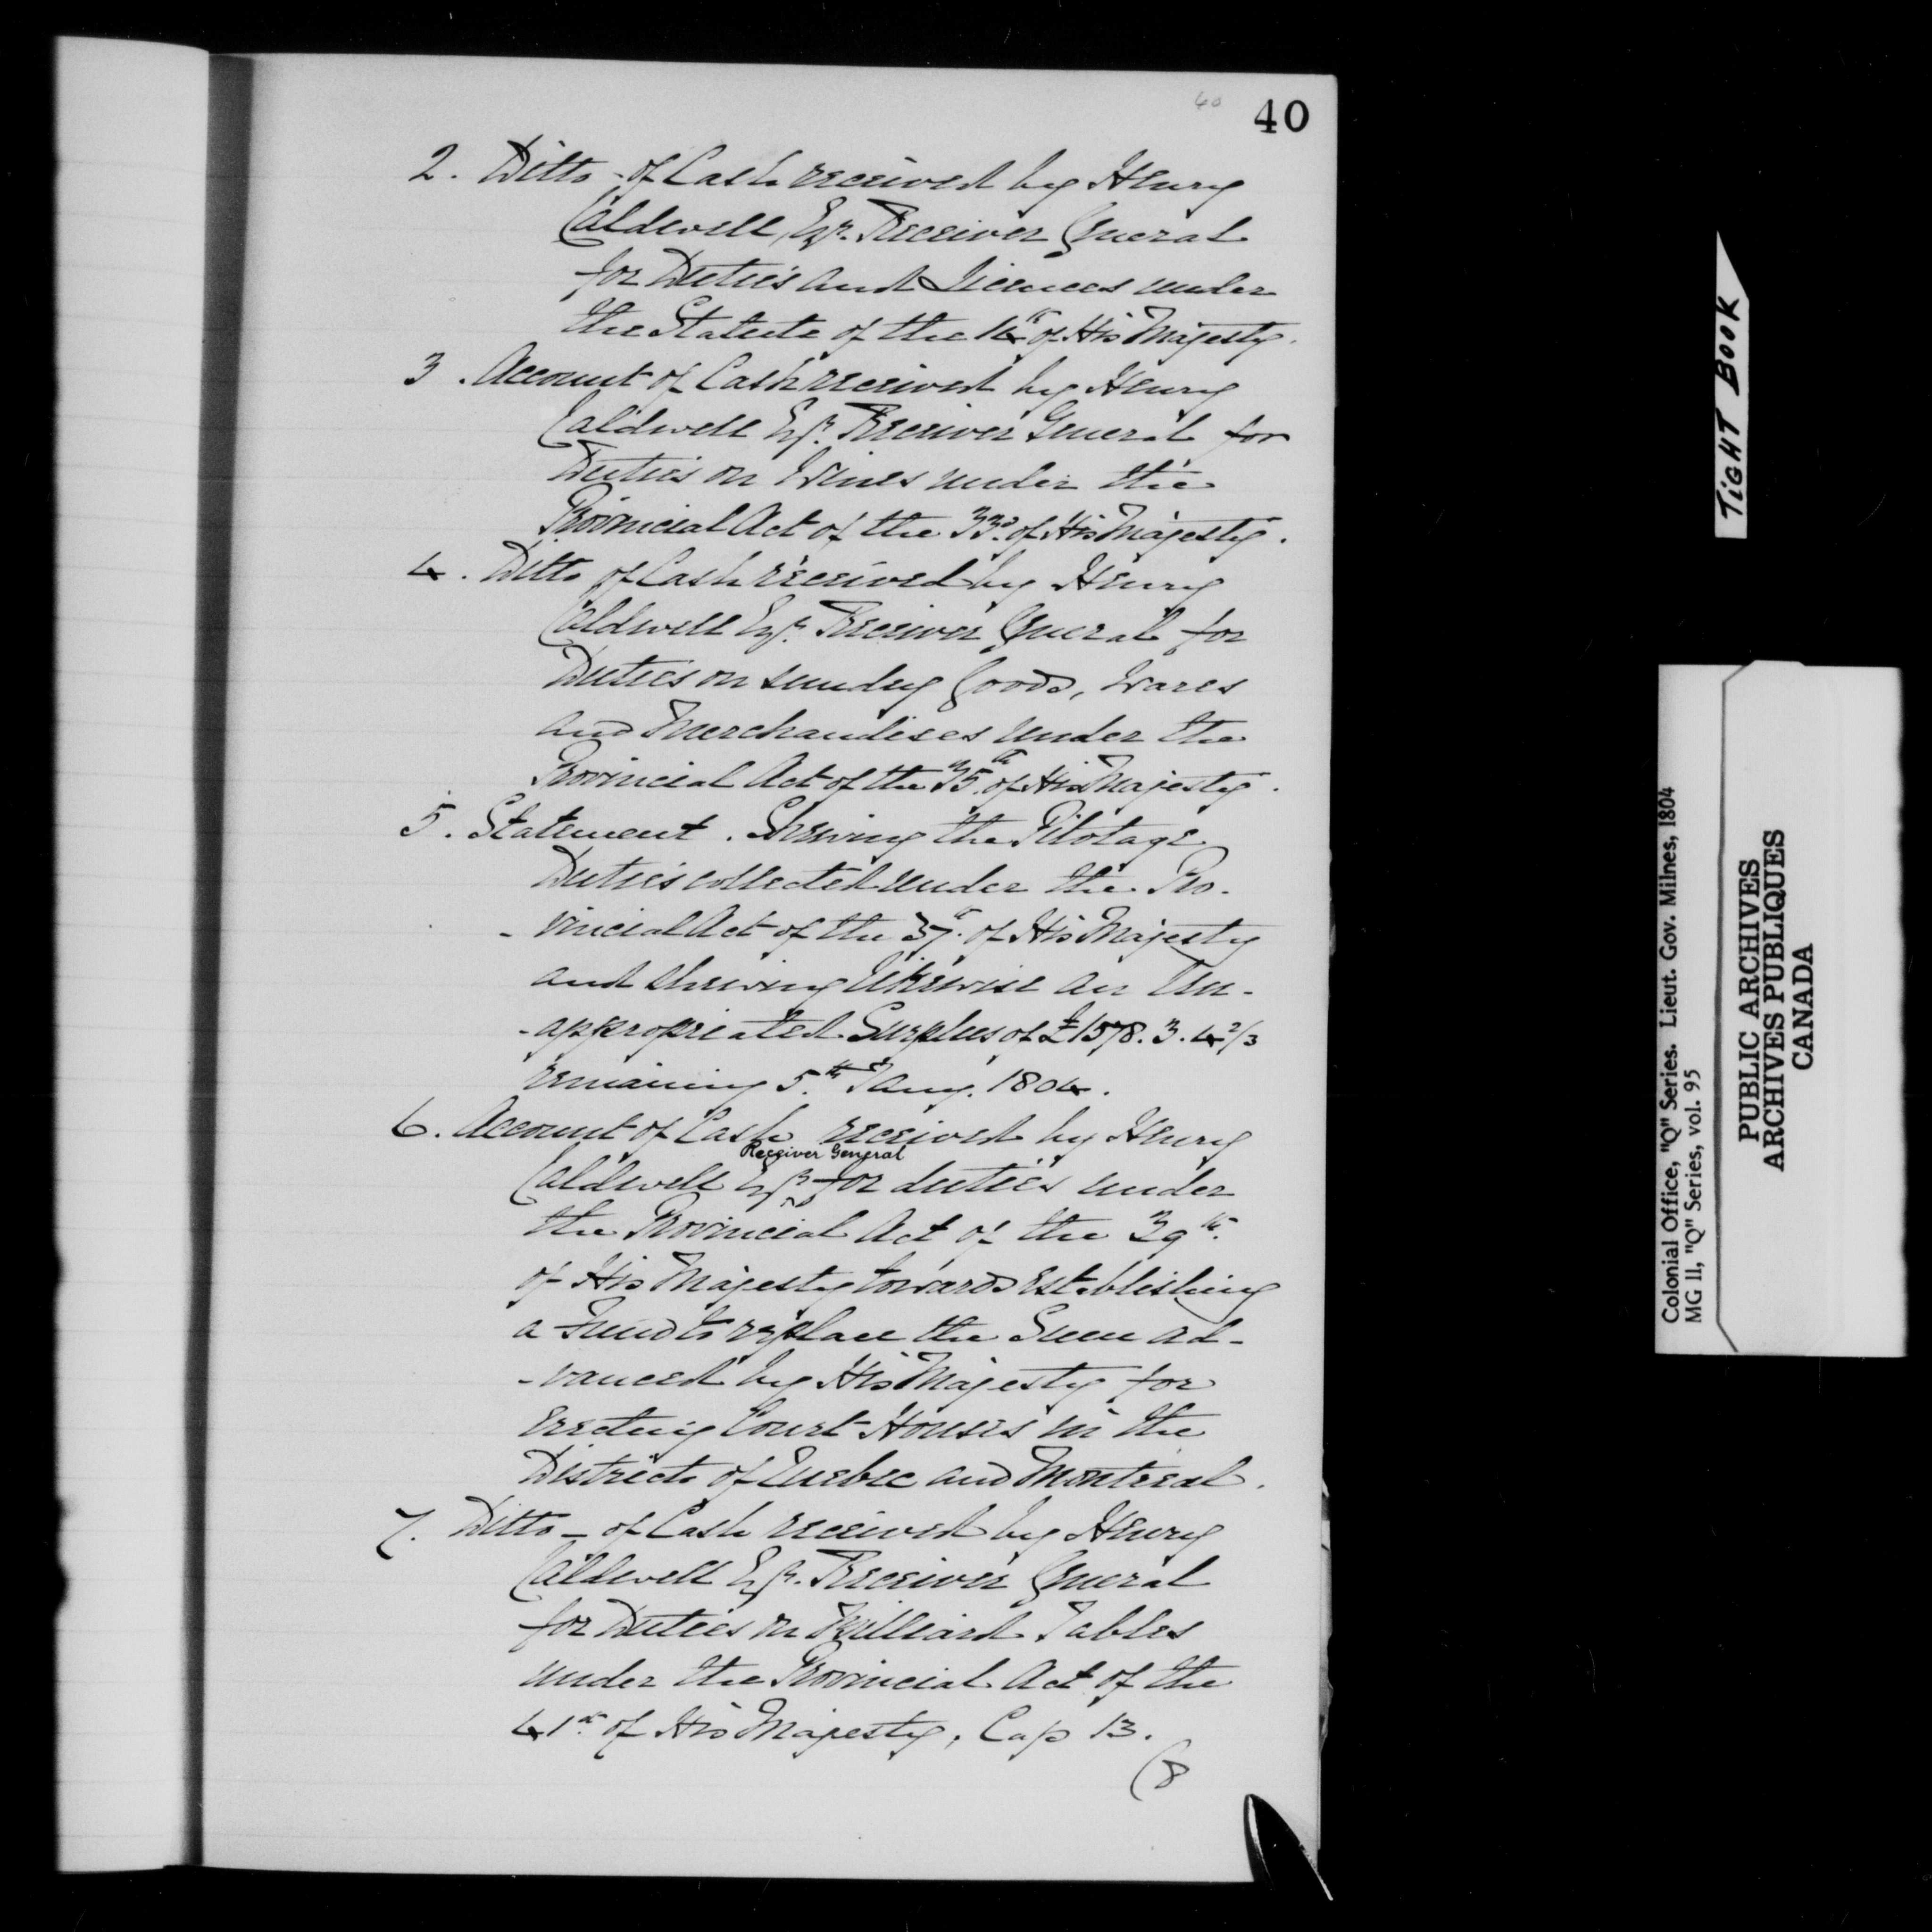 40
40
2. Ditto - of Cash received by Henry
Caldwell, Esqr. Receiver General
for Duties and Licences under
the Statute of the 14th of His Majesty.
3. Account of Cash received by Henry
Caldwell Esqr. Receiver General for
Duties on Wines under the
Provincial Act of the 33d. of His Majesty.
4. Ditto of Cash received by Henry
Caldwell Esqr. Receiver General for
Duties on sundry Goods, Wares
and Merchandises under the
Provincial Act of the 35th of His Majesty.
5. Statement. Shewing the Pilotage
Duties collected under the Pro-
-vincial Act of the 37th. of His Majesty
and shewing likewise an Un-
-appropriated Surplus of £1578. 3. 4 2/3
remaining 5th. Jany. 1804.
6. Account of Cash received by Henry
Receiver General
Caldwell Esqr. for duties under
the Provincial Act of the 39th.
of His Majesty towards establishing
a Fund to replace the Sum ad-
-vanced by His Majesty for
Erecting Court Houses in the
Districts of Quebec and Montreal.
7. Ditto - of Cash received by Henry
Caldwell Esqr. Receiver General
for Duties on Billiard Tables
under the Provincial Act of the
41st. of His Majesty, Cap 13.
(8
TIGHT BOOK
Colonial Office, "Q" Series. Lieut. Gov. Milnes, 1804
MG 11, "Q" Series, vol. 95
PUBLIC ARCHIVES
ARCHIVES PUBLIQUES
CANADA